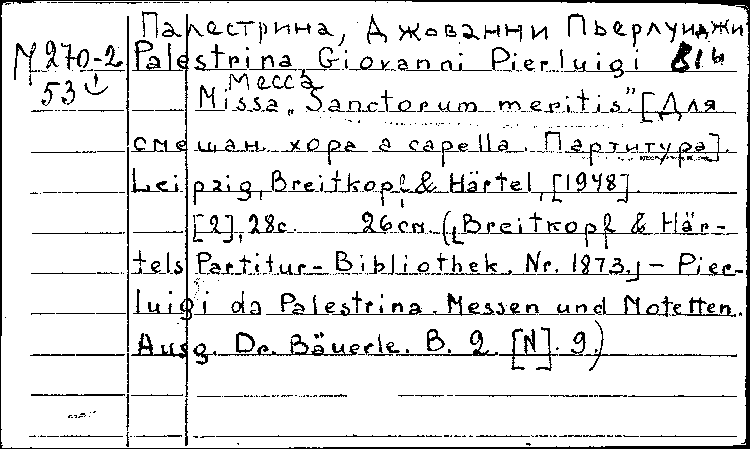 Палестрина, Джованни Пьерлуиджи
М 270-2 Palestrina Giovanni Pierluigi
53 Месса
Missa „Sanctorum meritis". [Для
смешан. хора a capella. Партитура].
Leipzig, Breitkopf & Härtel, [1948].
[2], 28с. 26см. ([Breitkopf & Här-
tels Partitur-Bibliothek. Nr. 1873.] – Pier-
luigi da Palestrina. Messen und Motetten.
Ausg. Dr. Bäuerle. B. 2. [N]. 9.)